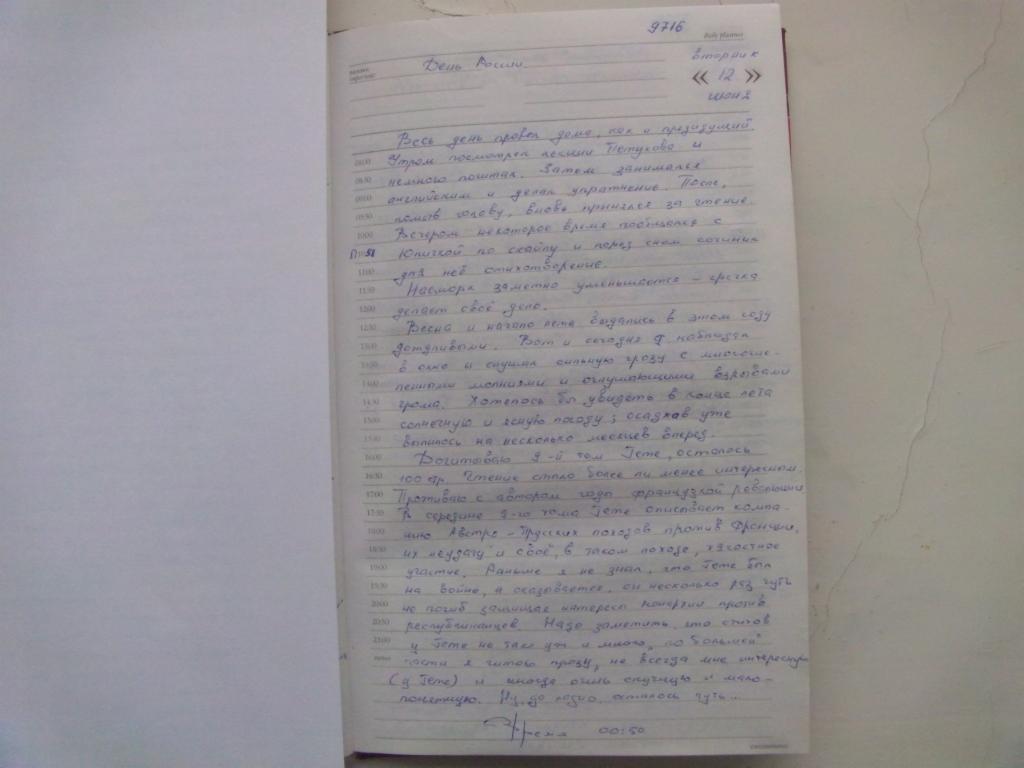 9716
Daily planner
День России
вторник
« 12 »
июня
Весь день провел дома, как и предидущий.
08:00 Утром посмотрел лекции Петухова и
08:30 немного поштал. Затем занимался
09:00 английским и делал упражнение. После,
09:30 помыв голову, вновь принялся за чтение.
10:00 Вечером некоторое время пообщался с
по скайпу и перед сном сочинил
11:00 для неё стихотворение.
11:30 Насморк заметно уменьшается – гречка
12:00 делает своё дело.
12:30 Весна и начало лета выдались в этом году
13:00 дождливыми. Вот и сегодня я наблюдал
13:30 в окно и слушал сильную грозу с многочис-
14:00 ленными молниями и оглушающими взрывами
14:30 грома. Хотелось бы увидеть в конце лета
15:00 солнечную и ясную погоду; осадков уже
15:30 вылилось на несколько месяцев вперед.
16:00 Дочитываю 9-й том Гете, осталось
16:30 100 стр. Чтение стало более ли менее интересным.
17:00 Проживаю с автором годы французской революции
17:30 В середине 9-го тома Гете описывает компа-
18:00 нию Австро-Прусских походов против Франции,
18:30 их неудачу и своё, в таком походе, участие
19:00 участие. Раньше я не знал, что Гете был
19:30 на войне, а оказывается, он несколько раз чуть
20:00 не погиб защищая интересы монархии против
20:30 республиканцев. Надо заметить, что стихов
21:00 у Гете не так уж и много, по большей
части я читаю прозу, не всегда мне интересную
(у Гете) и иногда очень скучную и мало-
понятную. Ну да ладно, осталось чуть...
Время 00:50